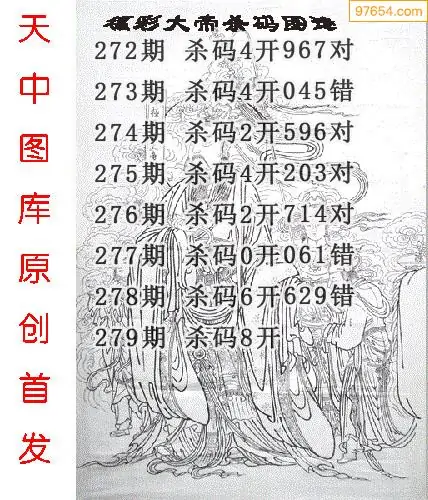 97654.com
福彩大帝杀码图逸
272期 杀码4开967对
273期 杀码4开045错
274期 杀码2开596对
275期 杀码4开203对
276期 杀码2开714对
277期 杀码0开061错
278期 杀码6开629错
279期 杀码8开
天中图库原创首发